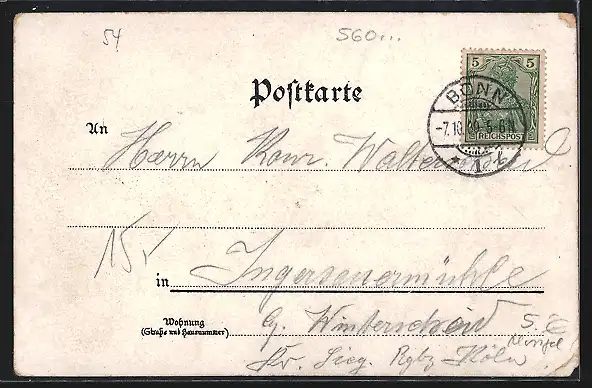 54
560...
Postkarte
5 5
REICHSPOST
BONN
-7.10. 5-6N
* 1
An Herrn Konr. Walter
15,-
in Ingersauermühle
Wohnung
(Straße und Hausnummer)
Winterscheid
Kr. Sieg. Rgbz Köln